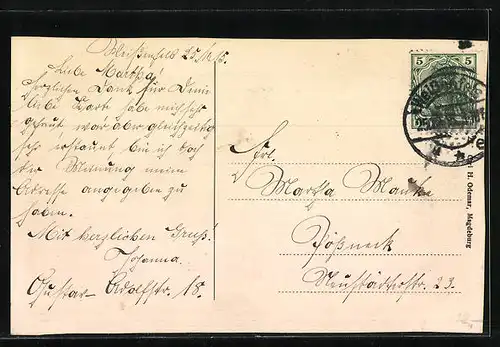 Weißenfels 25.11.15.
Liebe Martha!
Herzlichen Dank für Deine
liebe Karte habe mich sehr
gefreut, war aber gleichzeitig
sehr erstaunt bin ich doch
der Meinung meine
Adresse angegeben zu
haben.
Mit herzlichen Gruß!
Johanna
Gustav-Adolfstr. 18.
5 5
Frl.
Martha
Pößneck
Neustädterstr. 23.
H. Odemar, Magdeburg